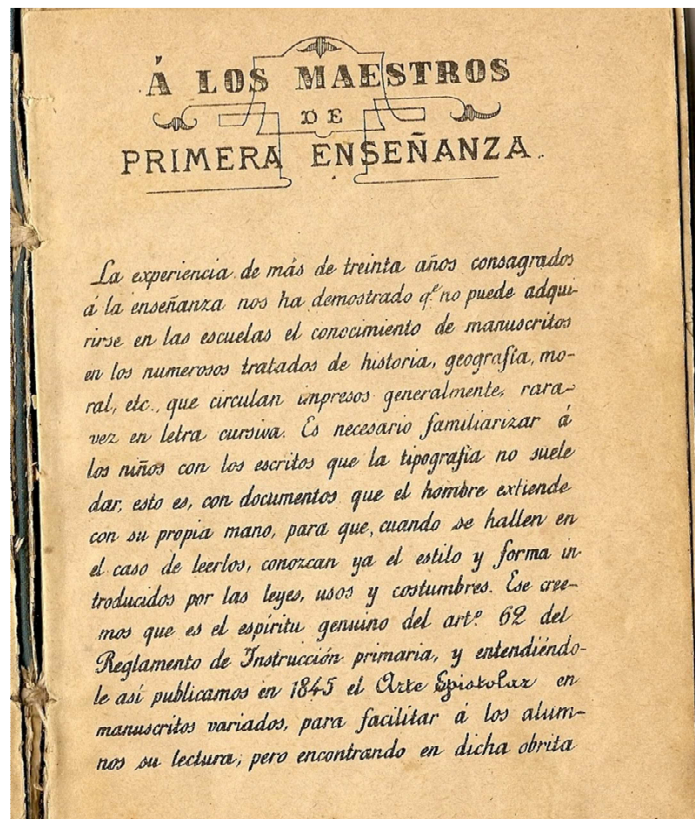 Á LOS MAESTROS
DE
PRIMERA ENSEÑANZA.
La experiencia de más de treinta años consagrados
á la enseñanza nos ha demostrado q.e no puede adqui-
rirse en las escuelas el conocimiento de manuscritos
en los numerosos tratados de historia, geografía, mo-
ral, etc., que circulan impresos generalmente, rara-
vez en letra cursiva. Es necesario familiarizar á
los niños con los escritos que la tipografía no suele
dar, esto es, con documentos que el hombre extiende
con su propia mano, para que, cuando se hallen en
el caso de leerlos, conozcan ya el estilo y forma in-
troducidos por las leyes, usos y costumbres. Ese cree-
mos que es el espíritu genuino del art.º 62 del
Reglamento de Instrucción primaria, y entendiéndo-
le así publicamos en 1845 el Arte Epistolar en
manuscritos variados, para facilitar á los alum-
nos su lectura; pero encontrando en dicha obrita